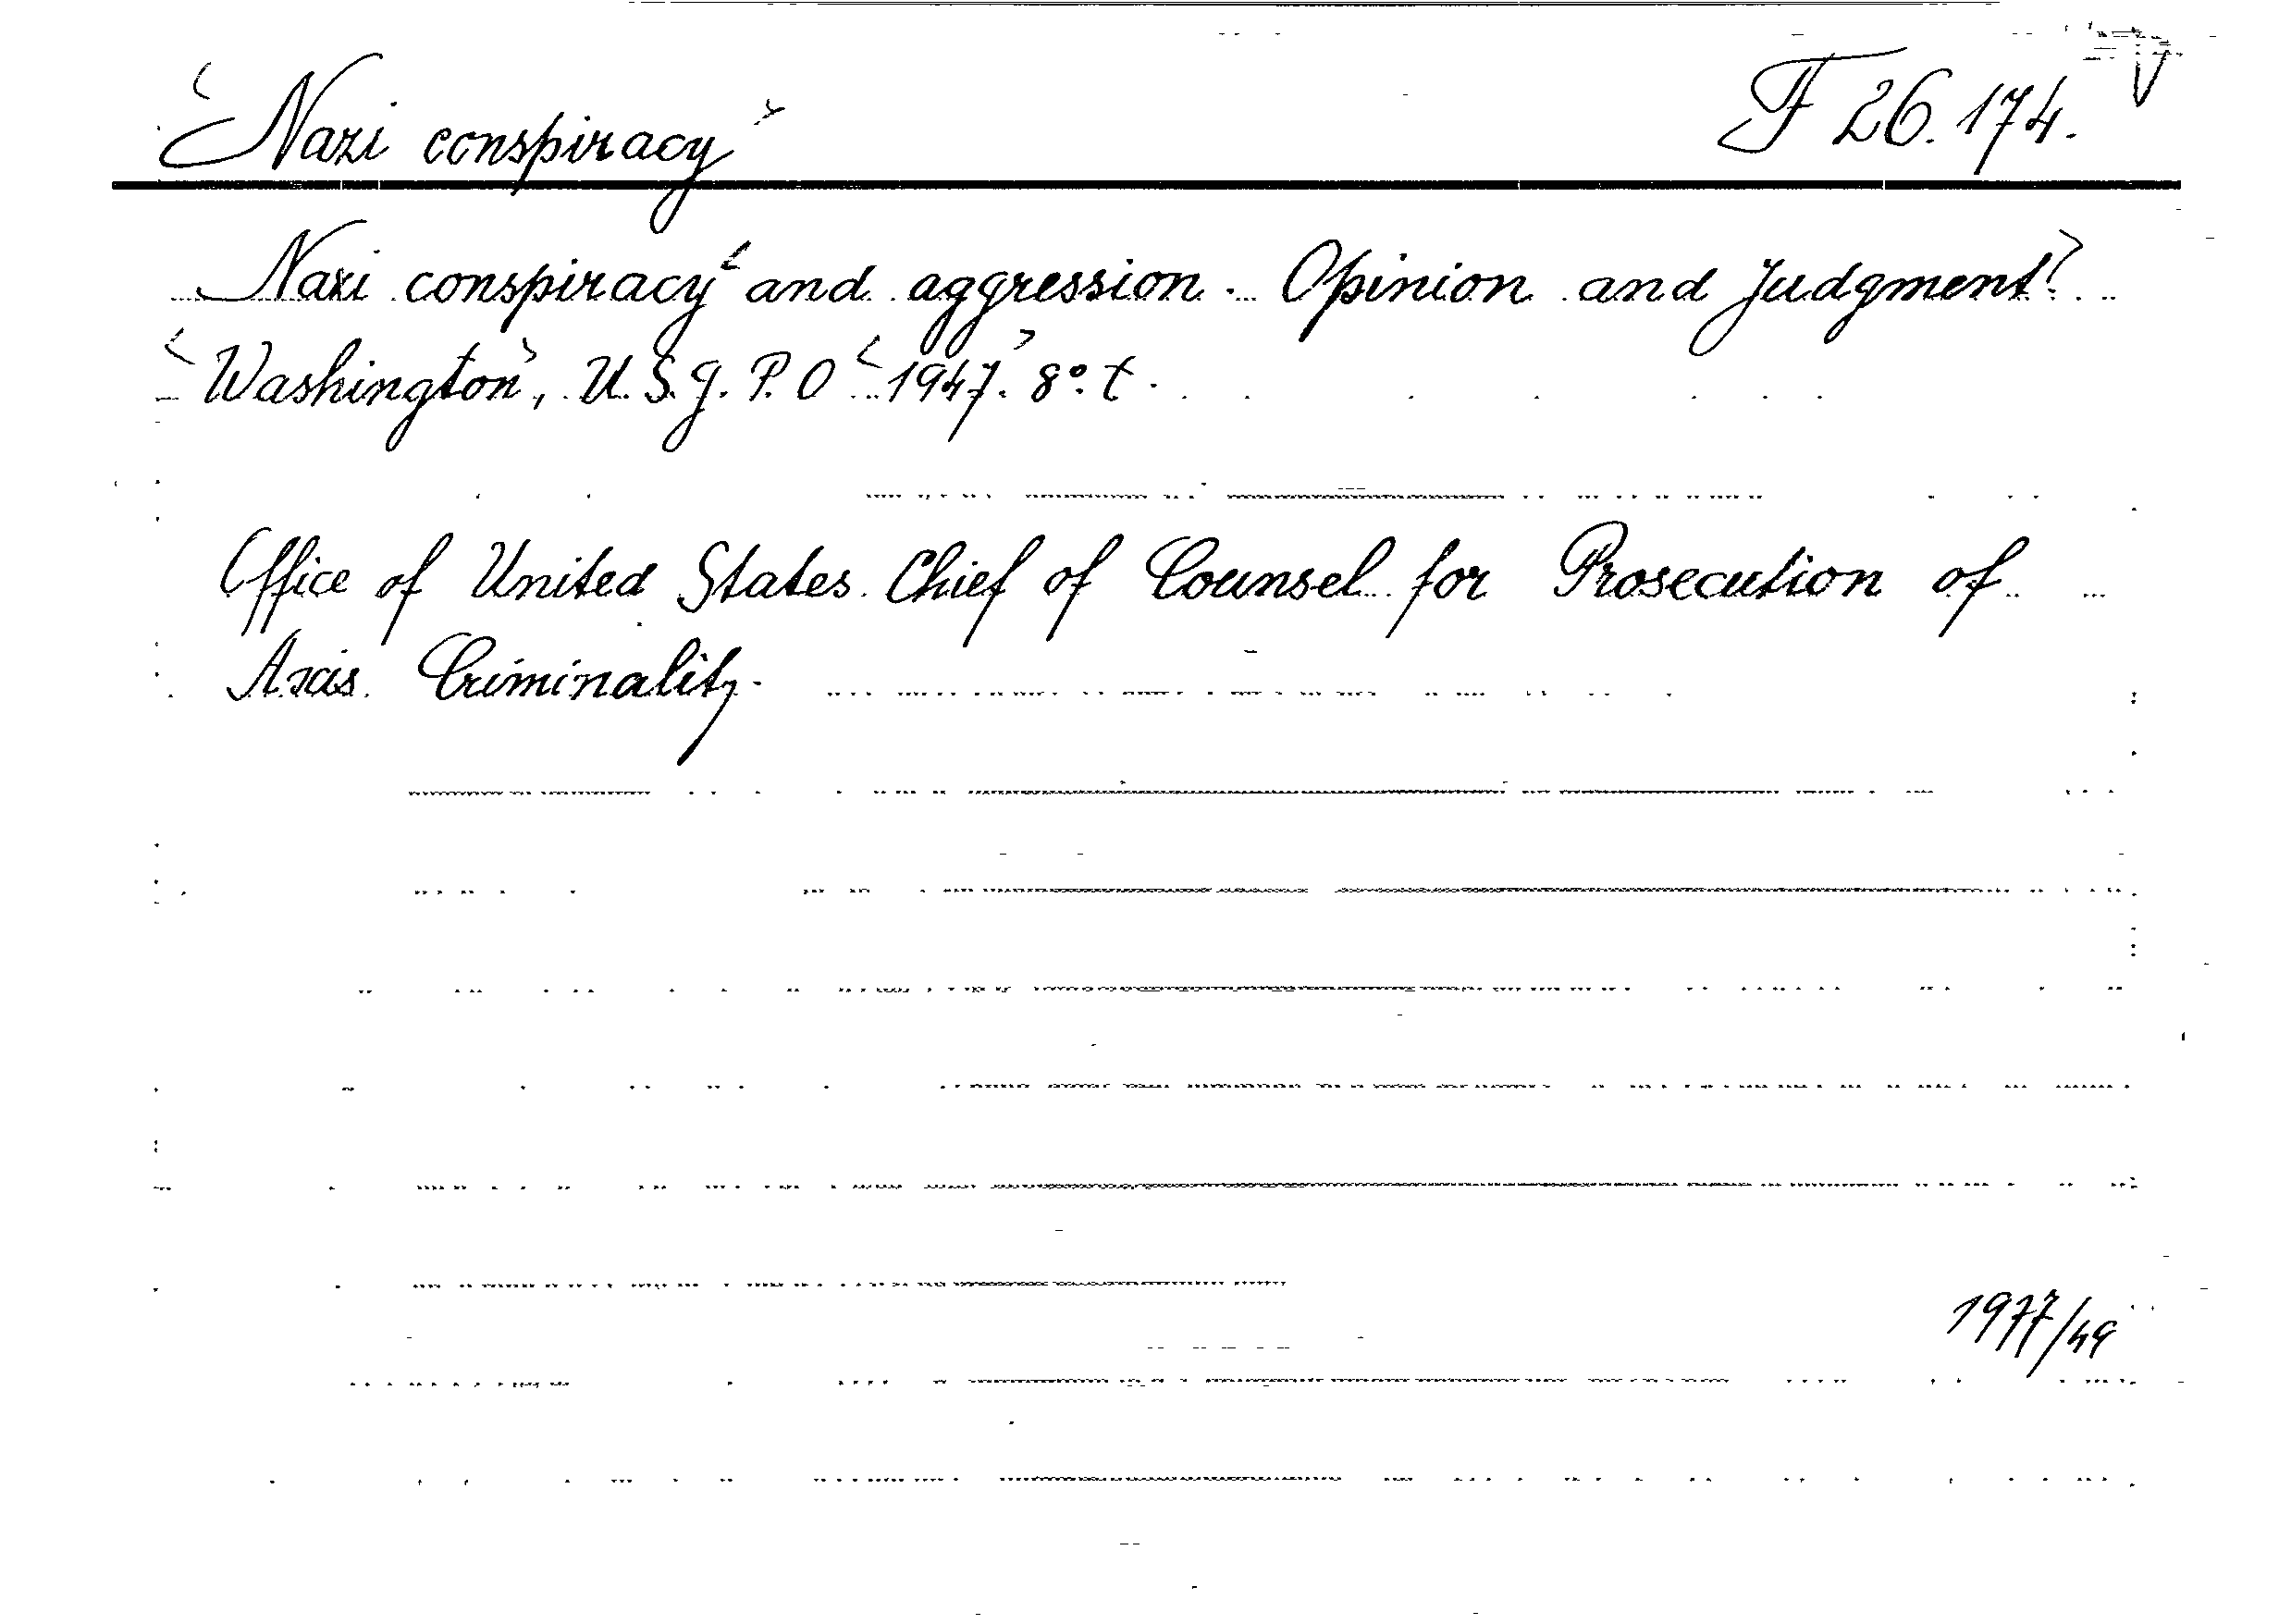 <Nazi conspiracy> F 26.174. V
Nazi conspiracy< and aggression. Opinion and Judgment>.
<Washington>, U.S.G.P.O <1947.> 8°. t.
Office of United States Chief of Counsel for Prosecution of
Axis Criminality.
1977/49